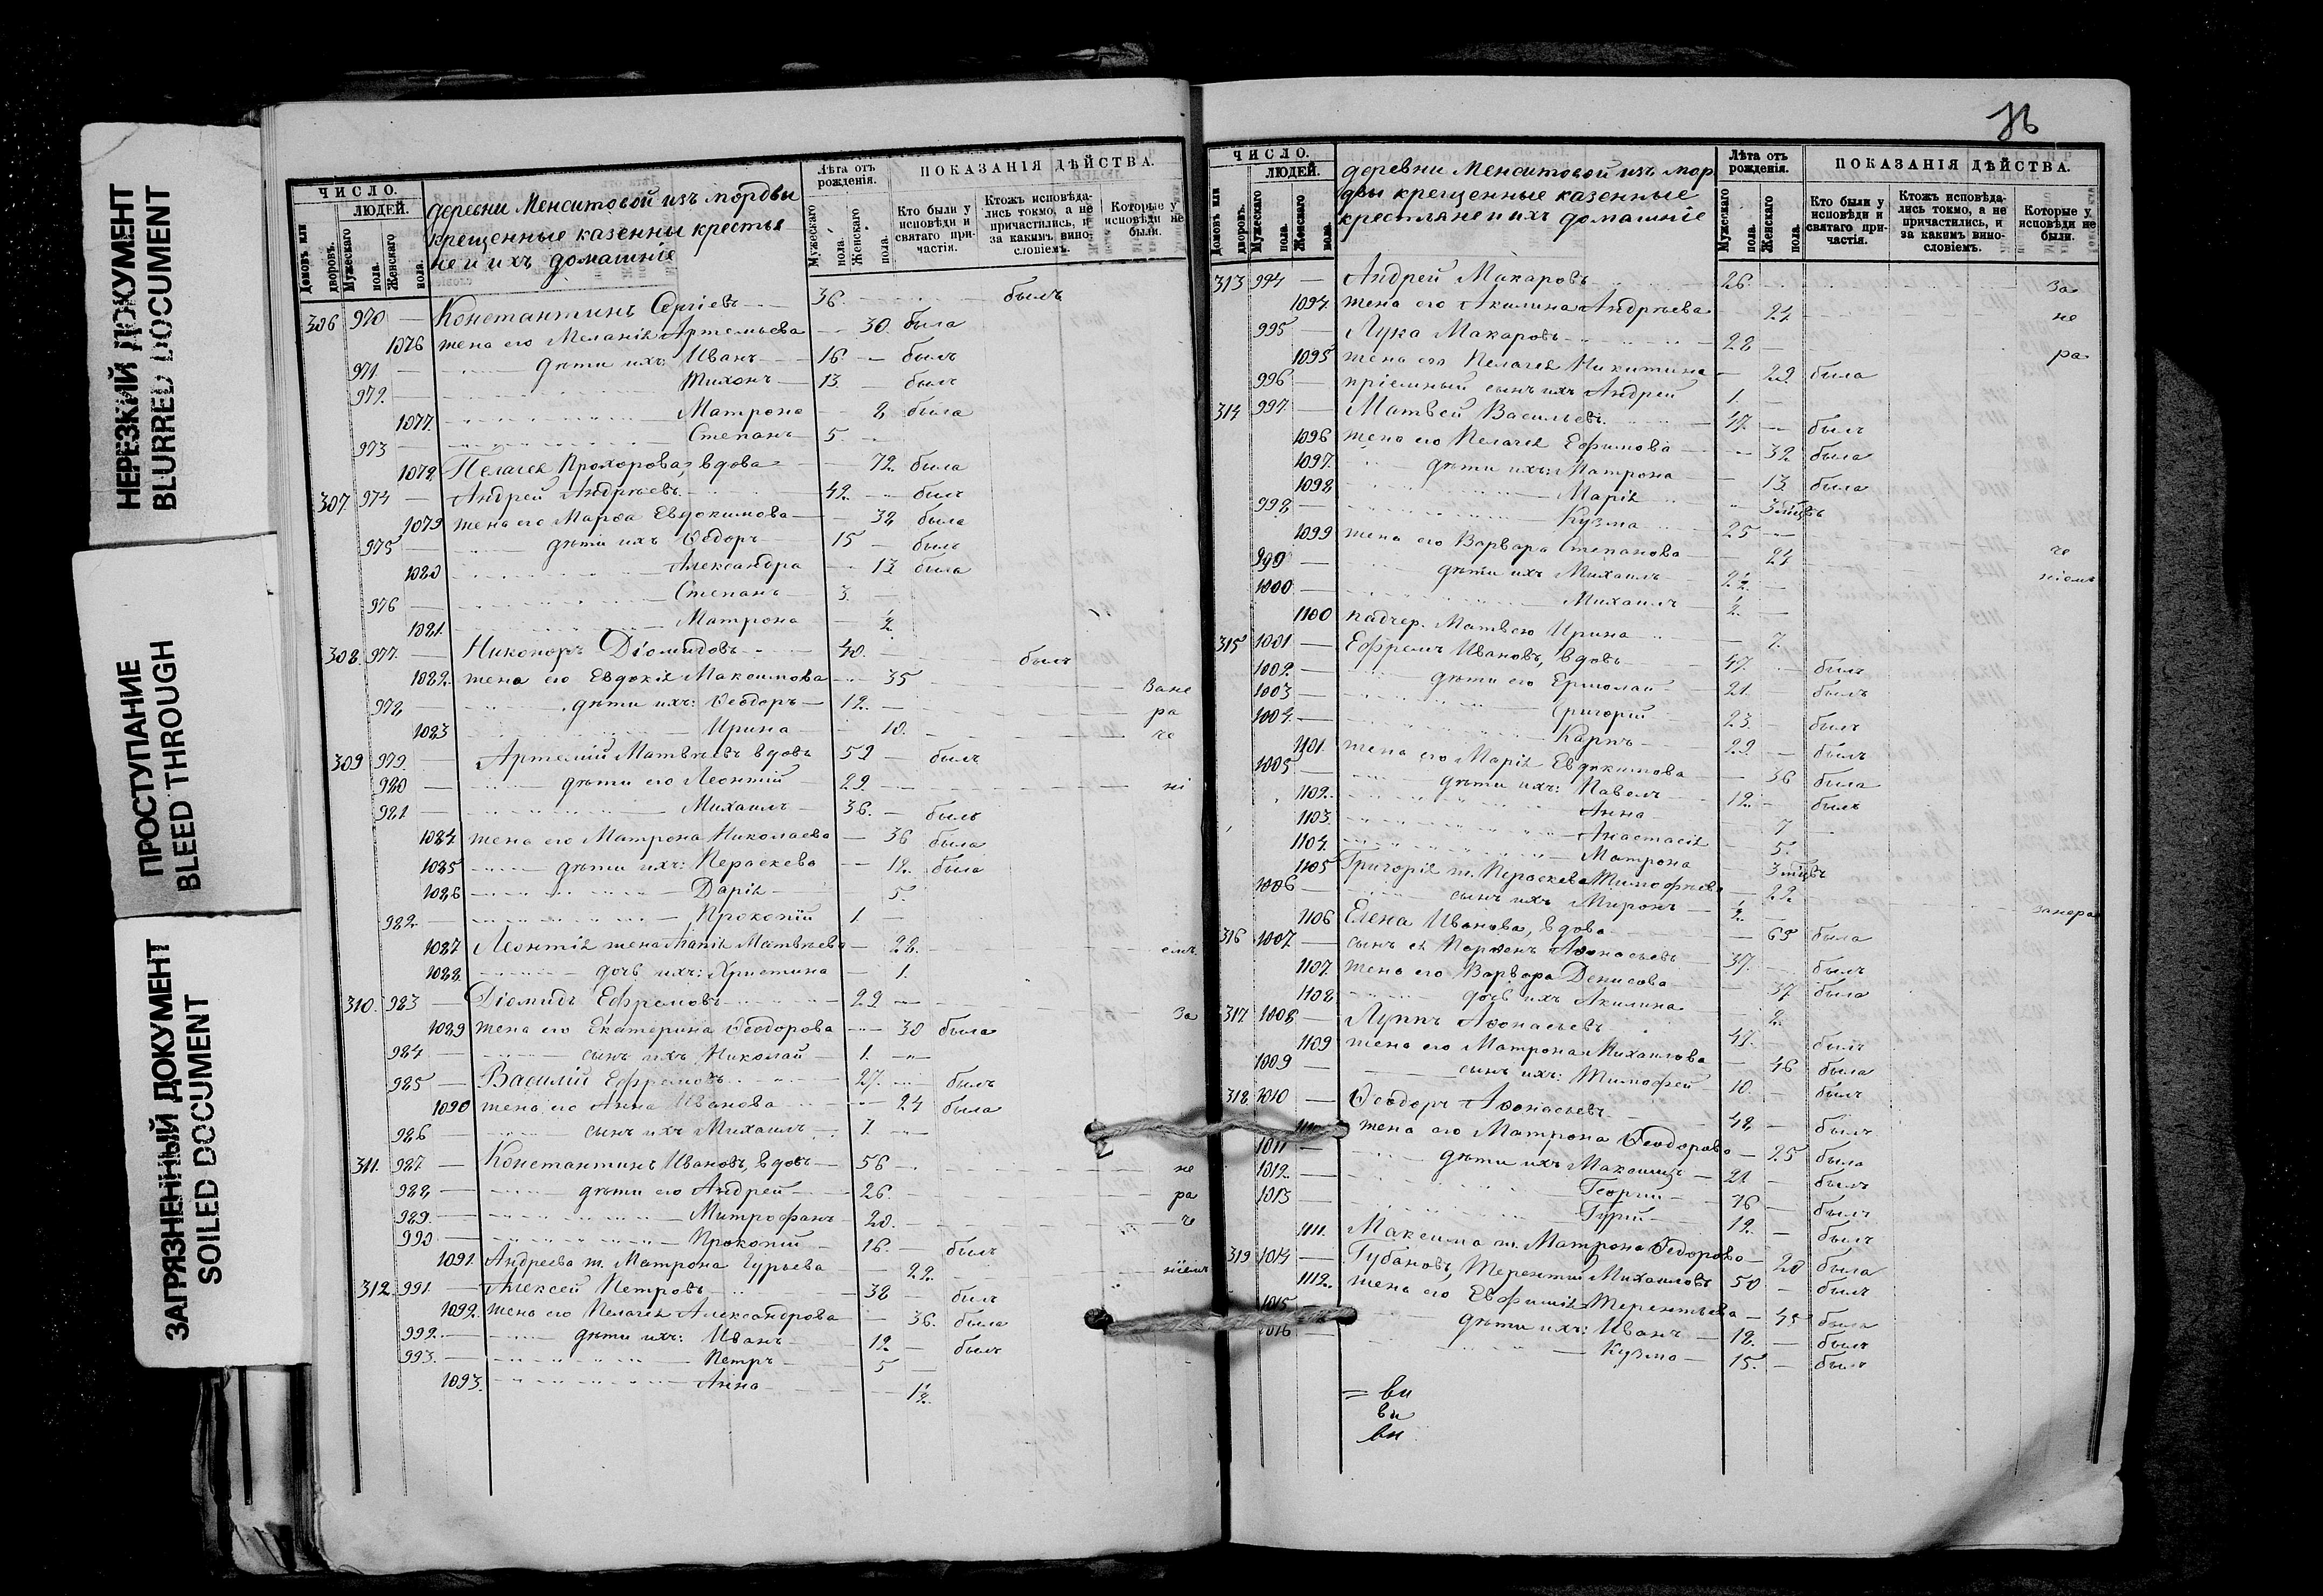 НЕРЕЗКИЙ ДОКУМЕНТ
BLURRED DOCUMENT
ПРОСТУПАНИЕ
BLEED THROUGH
ЗАГРЯЗНЕННЫЙ ДОКУМЕНТ
SOILED DOCUMENT
ЧИСЛО.
ЛЮДЕЙ.
Домовъ или дворовъ.
Мужескаго пола.
Женскаго пола.
деревни Менситовой изъ мордвы
крещенные казенны крестья
не и ихъ домашніе
Лѣта отъ рожденія.
Мужескаго пола.
Женскаго пола.
ПОКАЗАНІЯ ДѢЙСТВА.
Кто были у исповѣди и святаго причастія.
Ктожъ исповѣдались токмо, а не причастились, и за какимъ винословіемъ.
Которые у исповѣди не были.
306 970 — Константинъ Сергіевъ 36. былъ
1076 жена его Меланія Артемьева 30. была
971. дѣти ихъ: Иванъ 16. былъ
972. Тихонъ 13. былъ
1077. Матрона 8 была
973 Степанъ 5.
1078 Пелагея Прохорова, вдова 72. была
307. 974 Андрей Андрѣевъ 42. былъ
1079 жена его Марѳа Евдокимова 38 была
975 дѣти ихъ Ѳеодоръ 15 былъ
1080 Александра 13 была
976 Степанъ 3.
1081. Матрона ½
308. 977. Никоноръ Діомидовъ 40. былъ
1082. жена его Евдокія Максимова 35
Зане
978 дѣти ихъ: Ѳеодоръ 12. ра
1083 Ирина 10. че
309 979. Артемій Матвѣевъ вдовъ 59 былъ
980 дѣти его Леонтій 29. ні
981 Михаилъ 36. былъ
1084. жена его Матрона Николаева 36 была
1085 дѣти ихъ: Пераскева 12. была
1086 Дарія 5.
982. Прокопій 1.
1087 Леонтія жена Матвѣева 28. емъ
1088. дочь ихъ: Христина 1.
310. 983 Діомидъ Ефремовъ 29 За
1089 жена его Екатерина Ѳеодорова 30 была
984 сынъ ихъ Николай 1.
985 Василій Ефремовъ 27. былъ
1090 жена его Анна Иванова 24 была
986 сынъ ихъ Михаилъ 1
311. 987. Константинъ Ивановъ, вдовъ 56 не
988 дѣти его Андрей 26. ра
989. Митрофанъ 20. че
990 Прокопій 16. былъ
1091. Андреева ж. Матрона Гурьева 22. ніемъ
312. 991. Алексей Петровъ 38 былъ
1092. жена его Пелагея Александрова 36. была
992. дѣти ихъ: Иванъ 12 былъ
993. Петръ 5
1093. Анна 1½
ЧИСЛО.
ЛЮДЕЙ.
Домовъ или дворовъ.
Мужескаго пола.
Женскаго пола.
деревни Менситовой изъ мор
двы крещенные казенные
крестьяне и ихъ домашніе
Лѣта отъ рожденія.
Мужескаго пола.
Женскаго пола.
ПОКАЗАНІЯ ДѢЙСТВА.
Кто были у исповѣди и святаго причастія.
Ктожъ исповѣдались токмо, а не причастились, и за какимъ винословіемъ.
Которые у исповѣди не были.
313 994 — Андрей Макаровъ 26. За
1094. жена его Акилина Андрѣева 24 не
995 Лука Макаровъ 28 ра
1095 жена его Пелагея Никитина 29 была
996 пріемный сынъ ихъ Андрей 1.
314 997. Матвей Васильевъ 47. былъ
1096 жена его Пелагея Ефимова 38 была
1097. дѣти ихъ: Матрона 13 была
1098 Марія 3 мѣсцъ
998 Кузма 25
1099 жена его Варвара Степанова 24 че
999 дѣти ихъ Михаилъ 2½ ніемъ
1000 Михаилъ ½
1100 падчер. Матвею Ирина 7.
315 1001 Ефремъ Ивановъ, вдовъ 47. былъ
1002. дѣти его Ермолай 21. былъ
1003 Григорій 23. былъ
1004. Карпъ 29. былъ
1101. жена его Марія Евдокимова 36 была
1005 дѣти ихъ: Павелъ 12. былъ
1102. Анна 7
1103. Анастасія 5.
1104. Матрона 3 мѣсцъ
1105 Григорія ж. Пераскева Тимофѣева 22.
1006 сынъ ихъ Миронъ ½ занера
1106 Елена Иванова, вдова 65 была
316 1007. сынъ ея Парѳенъ Аѳонасьевъ 37. былъ
1107. жена его Варвара Денисова 37 была
1108 дочь ихъ Акилина 2.
317 1008 Луппъ Аѳонасьевъ 47. былъ
1109 жена его Матрона Михаилова 46 была
1009 сынъ ихъ: Тимофей 10. былъ
318 1010 Ѳеодоръ Аѳонасьевъ 48 былъ
жена его Матрона Ѳеодорова 25 была
1011 дѣти ихъ Максимъ 21 былъ
1012. Георгій 16 былъ
1013 Гурій 12. былъ
1111. Максима ж. Матрона Ѳедорова 20 была
319 1014 Губановъ, Терентій Михаиловъ 50 былъ
1112. жена его Евфимія Терентьева 45 была
1015 дѣти ихъ: Иванъ 18. былъ
1016 Кузма 15. былъ
= ви
ви
ви